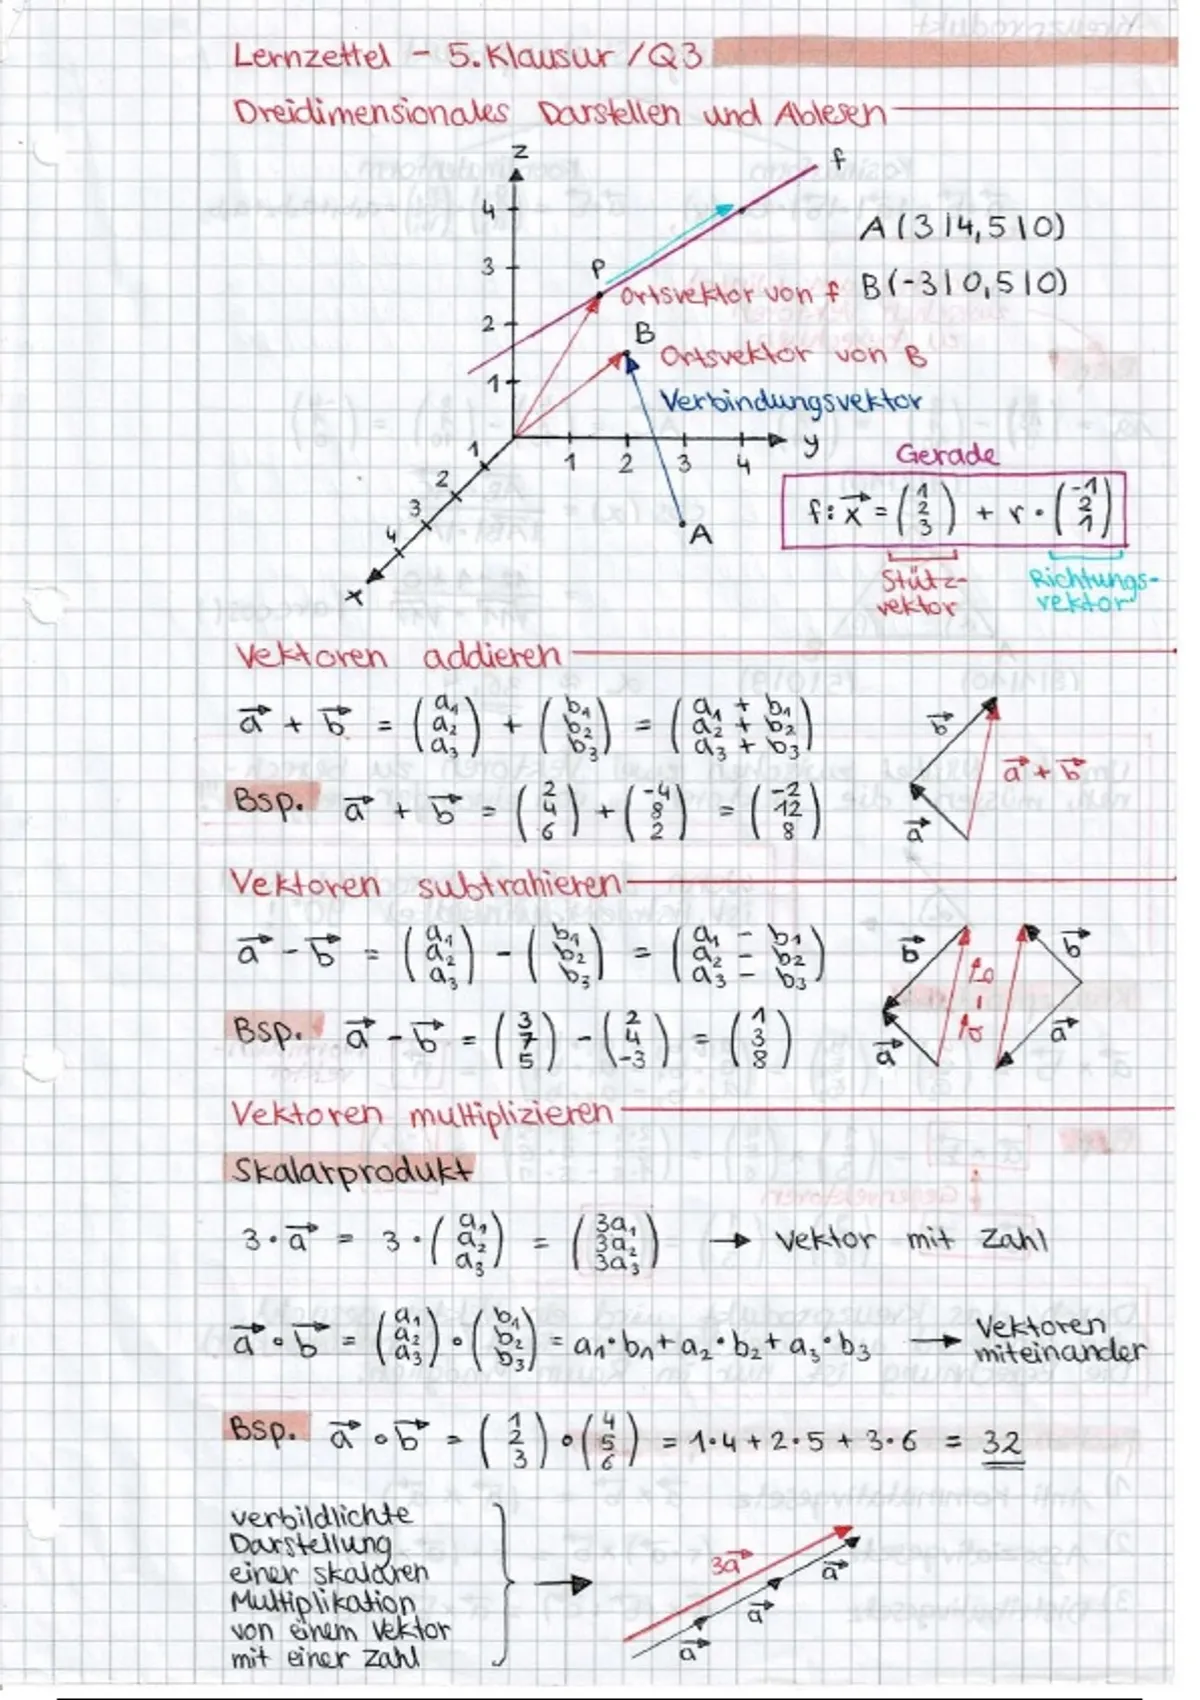 Lernzettel - 5. Klausur / Q3
Dreidimensionales Darstellen und Ablesen
z
f
4
A (3 | 4,5 | 0)
3
P
Ortsvektor von f
B (-3 | 0,5 | 0)
2
B
Ortsvektor von B
1
Verbindungsvektor
1 2 3 4 y
Gerade
1
2
3
4
x
A
f: x⃗ = (1 2 3) + r · (-1 2 1)
Stütz-
vektor
Richtungs-
vektor
Vektoren addieren
a⃗ + b⃗ = (a₁ a₂ a₃) + (b₁ b₂ b₃) = (a₁ + b₁ a₂ + b₂ a₃ + b₃)
b⃗
a⃗ + b⃗
a⃗
Bsp. a⃗ + b⃗ = (2 4 6) + (-4 8 2) = (-2 12 8)
Vektoren subtrahieren
a⃗ - b⃗ = (a₁ a₂ a₃) - (b₁ b₂ b₃) = (a₁ - b₁ a₂ - b₂ a₃ - b₃)
b⃗
a⃗
a⃗ - b⃗
b⃗
a⃗
Bsp. a⃗ - b⃗ = (3 7 5) - (2 4 -3) = (1 3 8)
Vektoren multiplizieren
Skalarprodukt
3 · a⃗ = 3 · (a₁ a₂ a₃) = (3a₁ 3a₂ 3a₃) → Vektor mit Zahl
a⃗ ∘ b⃗ = (a₁ a₂ a₃) ∘ (b₁ b₂ b₃) = a₁·b₁ + a₂·b₂ + a₃·b₃ → Vektoren
miteinander
Bsp. a⃗ ∘ b⃗ = (1 2 3) ∘ (4 5 6) = 1·4 + 2·5 + 3·6 = 32
verbildlichte
Darstellung
einer skalaren
Multiplikation
von einem Vektor
mit einer Zahl
→
3a⃗
a⃗
a⃗
a⃗